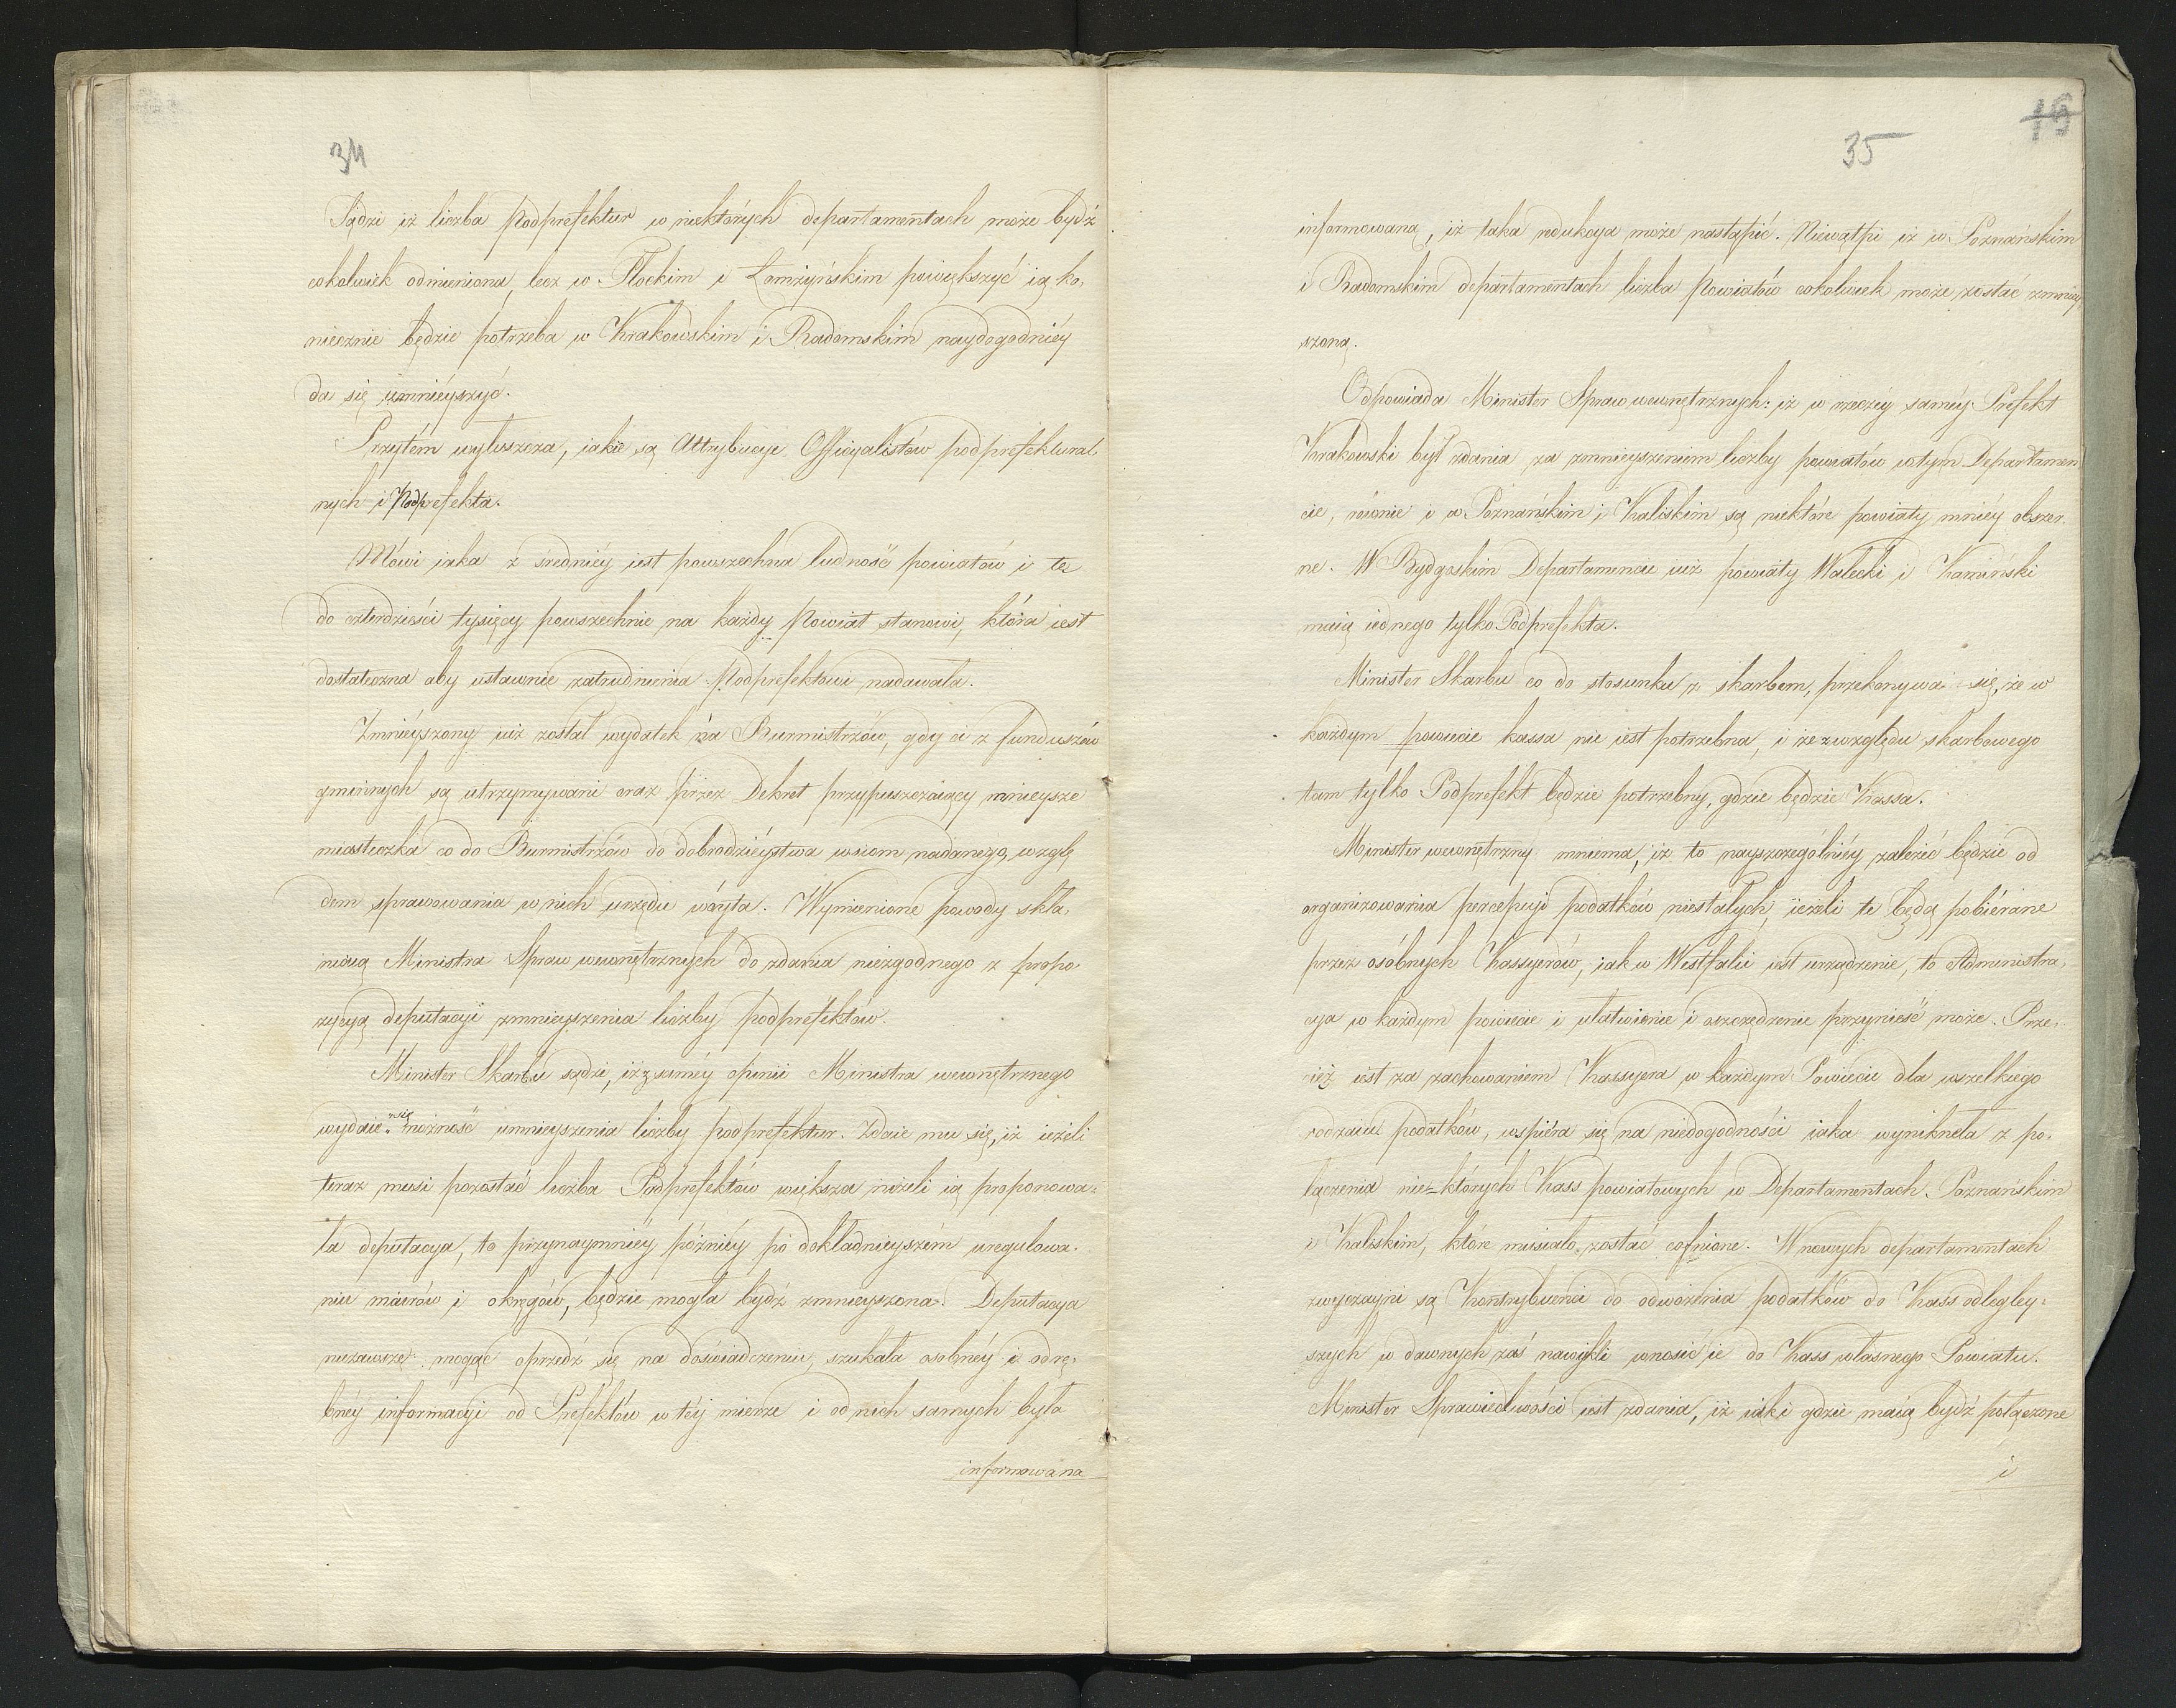 34
Sądzi iż liczba Podprefektur w niektórych departamentach może bydź
cokolwiek odmieniona, lecz w Płockim i Łomżyńskim powiększyć ią ko,
niecznie będzie potrzeba w Krakowskim i Radomskim naydogodniéy
da się umnieyszyć.
Przytém wyłuszcza, iakie są Attrybucye Officyalistów podprefektural,
nych i Podprefekta.
Mówi iaka z sredniéy iest powszechna ludność powiatów i te
do czterdzieści tysięcy powszechnie na każdy Powiat stanowi, która iest
dostateczna aby ustawnie zatrudnienia Podprefektowi nadawała.
Zmnieyszony iuż został wydatek na Burmistrzów, gdy ci z funduszów
gminnych są utrzymywani oraz przez Dekret przypuszczaiący mnieysze
miasteczka co do Burmistrzów do dobrodzieystwa wsiom nadanego, wzglę
dem sprawowania w nich urzędu wóyta. Wymienione powody skła,
niaią Ministra Spraw wewnętrznych do zdania niezgodnego z propo
zycyą deputacyi zmnieyszenia liczby podprefektów.
Minister Skarbu sądzi, iż z saméy opinii Ministra wewnętrznego
wydaie się możność umnieyszenia liczby podprefektur. Zdaie mu się, iż ieżeli
teraz musi pozostać liczba Podprefektów większa niżeli ią proponowa-
ła deputacya, to przynaymniéy późniéy po dokładnieyszém uregulowa-
niu mairów i okręgów, będzie mogła bydź zmnieyszona. Deputacya
niezawsze mogąc oprzedź się na doświadczeniu, szukała osobnéy i odrę,
bnéy informacyi od Prefektów w téy mierze i od nich samych była
informowana
15
35
informowaną, iż taka redukcya może nastąpić. Niewątpi iż w Poznańskim
i Radomskim departamentach liczba Powiatów cokolwiek może zostać zmniey
szoną.
Odpowiada Minister Spraw wewnętrznych: iż w rzeczy saméy Prefekt
Krakowski był zdania za zmnieyszeniem liczby powiatów w tym Departamen
cie, równie i w Poznańskim i Kaliskim są niektóre powiaty mniéy obszer.
ne. W Bydgoskim Departamencie iuż powiaty Wałecki i Kamiński
maią iednego tylko Podprefekta.
Minister Skarbu co do stosunku z skarbem, przekonywa się, że w
każdym powiecie kassa nie iest potrzebna, i że z względu skarbowego
tam tylko Podprefekt będzie potrzebny, gdzie będzie Kassa.
Minister wewnętrzny mniema, iż to nayszczególniéy zależeć będzie od
organizowania percepcyi podatków niestałych, ieżeli te będą pobiérane
przez osóbnych Kassyerów, iak w Westfalii iest urządzenie, to Administra,
cya w każdym powiecie i ułatwienie i oszczędzenie przynieść może. Prze,
cież iest za zachowaniem Kassyera w każdym Powiecie dla wszelkiego
rodzaiu podatków, wspiéra się na niedogodności iaka wyniknęła z po,
łączenia nie-których Kass powiatowych w Departamentach Poznańskim
i Kaliskim, które musiało zostać cofnione. W nowych departamentach
zwyczayni są Kontrybuenci do odwożenia podatków do Kass odległey-
szych w dawnych zaś nawykli wnosić ie do Kass własnego Powiatu.
Minister Sprawiedliwości iest zdania, iż iaki gdzie maią bydź połączone
i